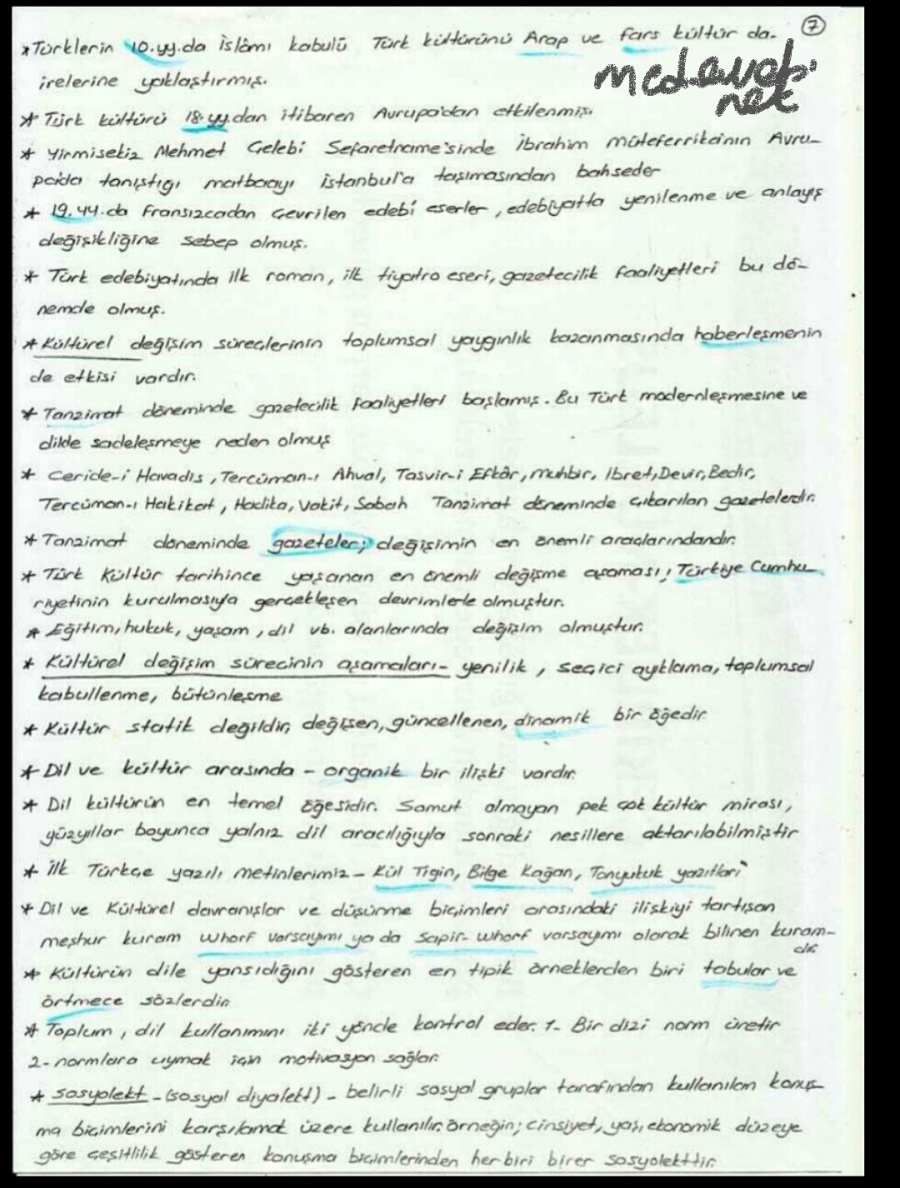 7
*Türklerin 10.yy.da İslâmı kabulü Türk kültürünü Arap ve fars kültür da-
irelerine yaklaştırmış.
medewebi
net
* Türk kültürü 18.yy.dan itibaren Avrupa'dan etkilenmiş
* Yirmisekiz Mehmet Çelebi Sefaretname'sinde İbrahim müteferrika'nın Avru-
pa'da tanıştığı matbaayı istanbul'a taşımasından bahseder
* 19.yy.da Fransızcadan çevrilen edebî eserler, edebiyatta yenilenme ve anlayış
değişikliğine sebep olmuş.
* Türk edebiyatında ilk roman, ilk tiyatro eseri, gazetecilik faaliyetleri bu dö-
nemde olmuş.
* Kültürel değişim süreçlerinin toplumsal yaygınlık kazanmasında haberleşmenin
de etkisi vardır.
* Tanzimat döneminde gazetecilik faaliyetleri başlamış. Bu Türk modernleşmesine ve
dilde sadeleşmeye neden olmuş
* Ceride-i Havadis, Tercüman-ı Ahval, Tasvir-i Efkâr, Muhbir, İbret, Devir, Bedir,
Tercüman-ı Hakikat, Hadika, Vakit, Sabah Tanzimat döneminde çıkarılan gazetelerdir.
* Tanzimat döneminde gazeteler; değişimin en önemli araçlarındandır.
* Türk Kültür tarihince yaşanan en önemli değişme aşaması; Türkiye Cumhu
riyetinin kurulmasıyla gerçekleşen devrimlerle olmuştur.
* Eğitim, hukuk, yaşam, dil vb. alanlarında değişim olmuştur.
* Kültürel değişim sürecinin aşamaları- yenilik, seçici ayıklama, toplumsal
kabullenme, bütünleşme
* Kültür statik değildir, değişen, güncellenen, dinamik bir öğedir
* Dil ve kültür arasında - organik bir ilişki vardır.
* Dil kültürün en temel öğesidir. Somut olmayan pek çok kültür mirası,
yüzyıllar boyunca yalnız dil aracılığıyla sonraki nesillere aktarılabilmiştir
* İlk Türkçe yazılı metinlerimiz - Kül Tigin, Bilge Kağan, Tonyukuk yazıtları
* Dil ve Kültürel davranışlar ve düşünme biçimleri arasındaki ilişkiyi tartışan
meşhur kuram Whorf varsayımı ya da Sapir-Whorf varsayımı olarak bilinen kuram-
dır.
* Kültürün dile yansıdığını gösteren en tipik örneklerden biri tabular ve
örtmece sözlerdir.
* Toplum, dil kullanımını iki yönde kontrol eder. 1- Bir dizi norm üretir
2- normlara uymak için motivasyon sağlar.
* Sosyolekt - (sosyal diyalekt) - belirli sosyal gruplar tarafından kullanılan konuş
ma biçimlerini karşılamak üzere kullanılır. örneğin; cinsiyet, yaş, ekonomik düzeye
göre çeşitlilik gösteren konuşma biçimlerinden her biri birer sosyolekttir.